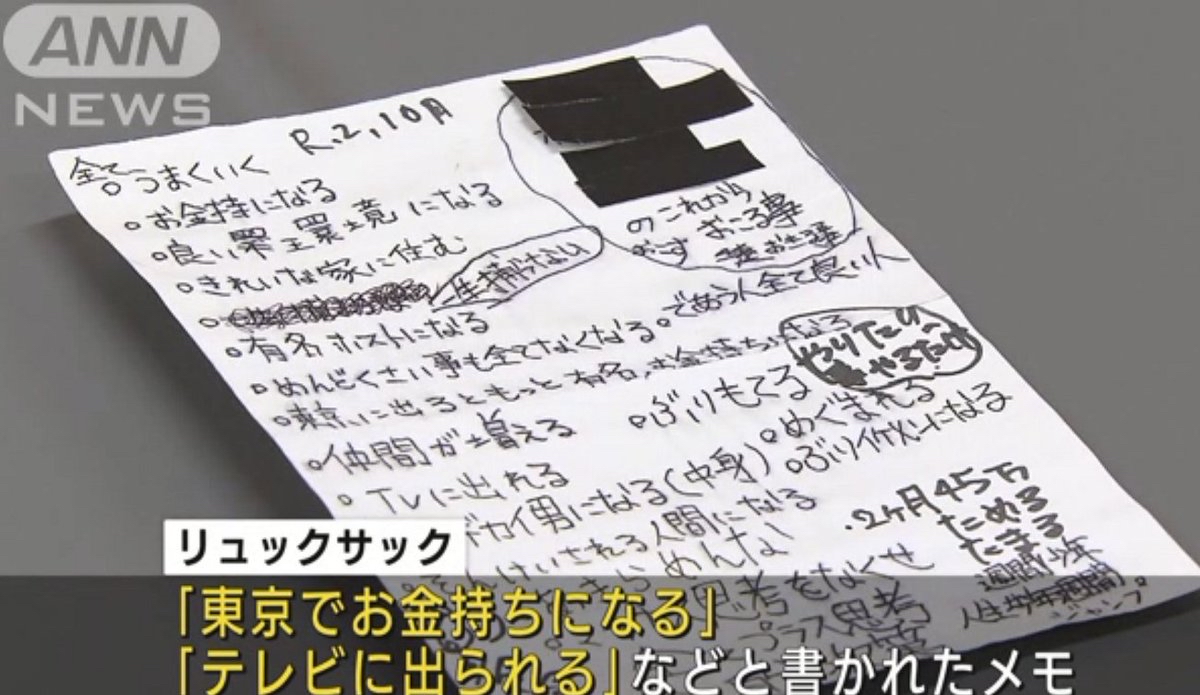 ANN
NEWS
R.2,10月
全てうまくいく
お金持になる
良い環境になる
きれいな家に住む
一生捕がらない
のこれから
おこす おこる事
であう人全て良い人
有名ホストになる
めんどくさい事も全てなくなる
東京に出るともっと有名、お金持ちになる
やりたり〜
やるだけ
仲間が増える
ぶりもてる
めぐまれる
TVに出れる
ぶりイケメンになる
デカイ男になる(中身)
んけいされる人間になる
めんない
思考をなくせ
プラス思考
.2ヶ月45万
ためる
たまる
週間少年
人生
ジャンプ
リュックサック
「東京でお金持ちになる」
「テレビに出られる」などと書かれたメモ